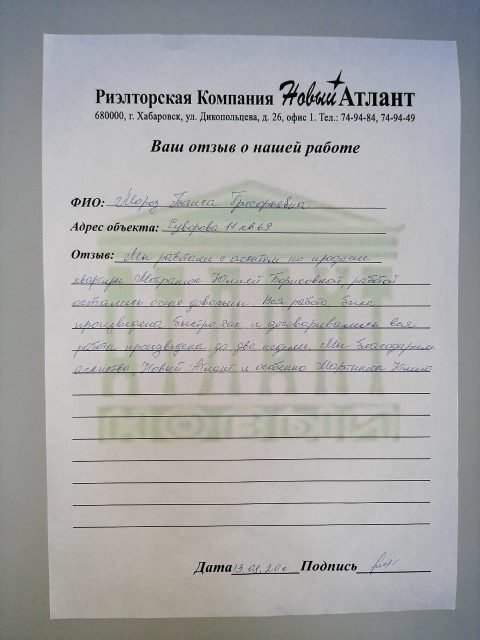 Риэлторская Компания Новый Атлант
680000, г. Хабаровск, ул. Дикопольцева, д. 26, офис 1. Тел.: 74-94-84, 74-94-49
Ваш отзыв о нашей работе
ФИО: Мороз Таиса Григорьевна
Адрес объекта: Суворова 11 кв 69
Отзыв: Мы работали с агентом по продаже
квартиры Мартынюк Юлией Борисовной, работой
остались очень довольны. Вся работа была
произведена быстро как и договаривались вся
работа произведена за две недели. Мы благодарим
агенство, Новый Атлант и особенно Мартынюк Юлию
АТЛАНТ
НОВЫЙ
Дата 13.08.20г Подпись